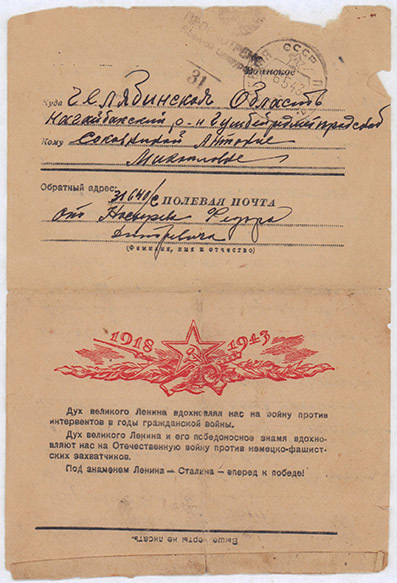 ПРОСМОТРЕНО
Военной Цензурой
31
СССР
6 5 43
Воинское
Куда Челябинская Область
Нагайбакский р-н
Кому Антонине
Обратный адрес: 31640/с ПОЛЕВАЯ ПОЧТА
От Федора
Дмитревича
(Фамилия, имя и отчество)
1918 1943
Дух великого Ленина вдохновлял нас на войну против
интервентов в годы гражданской войны.
Дух великого Ленина и его победоносное знамя вдохнов-
ляют нас на Отечественную войну против немецко-фашист-
ских захватчиков.
Под знаменем Ленина — Сталина — вперед к победе!
Выше черты не писать.